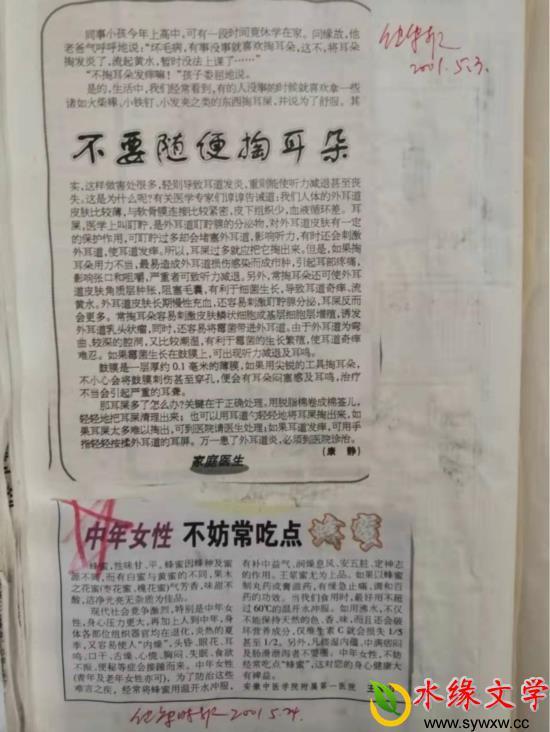 同事小孩今年上高中，可有一段时间竟休学在家。问缘故，他
老爸气呼呼地说：“坏毛病，有事没事就喜欢掏耳朵，这不，将耳朵
掏发炎了，流起黄水，暂时没法上课了……”
“不掏耳朵发痒嘛！”孩子委屈地说。
是的，生活中，我们经常看到，有的人没事的时候就喜欢拿一些
诸如火柴棒、小铁钉、小发夹之类的东西掏耳屎，并说为了舒服。其
不要随便掏耳朵
实，这样做害处很多，轻则导致耳道发炎，重则能使听力减退甚至丧
失。这是为什么呢？有关医学专家们谆谆告诫道：我们人体的外耳道
皮肤比较薄，与软骨膜连接比较紧密，皮下组织少，血液循环差。耳
屎，医学上叫耵聍，是外耳道耵聍腺的分泌物，对外耳道皮肤有一定
的保护作用，可耵聍过多却会堵塞外耳道，影响听力，有时还会刺激
外耳道，使耳道发痒。所以，耳屎过多就应把它掏出来，但是，如果掏
耳朵用力不当，最易造成外耳道损伤感染而成疖肿，引起耳部疼痛，
影响张口和咀嚼，严重者可致听力减退。另外，常掏耳朵还可使外耳
道皮肤角质层肿胀，阻塞毛囊，有利于细菌生长，导致耳道奇痒、流
黄水。外耳道皮肤长期慢性充血，还容易刺激耵聍腺分泌，耳屎反而
会更多。常掏耳朵容易刺激皮肤鳞状细胞或基层细胞层增殖，诱发
外耳道乳头状瘤，同时，还容易将霉菌带进外耳道。由于外耳道为弯
曲、较深的腔洞，又比较潮湿，有利于霉菌的生长繁殖，使耳道奇痒
难忍。如果霉菌生长在鼓膜上，可出现听力减退及耳鸣。
鼓膜是一层厚约0.1毫米的薄膜，如果用尖锐的工具掏耳朵，
不小心会将鼓膜刺伤甚至穿孔，便会有耳朵闷塞感及耳鸣，治疗
不当会引起严重的耳聋。
那耳屎多了怎么办？关键在于正确处理，用脱脂棉卷成棉签儿，
轻轻地把耳屎清理出来；也可以用耳道勺轻轻地将耳屎掏出来，如
果耳屎太多难以掏出，可到医院请医生处理；如果耳道发痒，可用手
指轻轻按揉外耳道的耳屏。万一患了外耳道炎，必须到医院诊治。
（康 静）
家庭医生
2001.5.3.
中年女性 不妨常吃点 蜂蜜
蜂蜜，性味甘、平。蜂蜜因蜂种及蜜
源不同，而有白蜜与黄蜜的不同，果木
之花蜜（枣花蜜、槐花蜜）气芳香，味甜不
酸，洁净光亮无杂质为佳品。
现代社会竞争激烈，特别是中年女
性，身心压力更大，再加上人到中年，身
体各部位组织器官均在退化，炎热的夏
季，又容易使人“内燥”，头昏、眼花、耳
鸣、口干、舌燥、心慌、胸闷、失眠、食欲
不振、便秘等症会接踵而来。中年女性
（青年及老年女性亦可），为了防治这些
难言之疾，经常将蜂蜜用温开水冲服，
有补中益气，润燥息风，安五脏，定神志
的作用。王浆蜜尤为上品。如果以蜂蜜
制丸药或膏滋药，有缓急止痛，调和百
药的功效。当我们食用时，最好用不超
过60℃的温开水冲服。如用沸水，不仅
不能保持天然的色、香、味，而且还会破
坏营养成分，仅维生素C就会损失1/5
至1/2。另外，凡痰湿内蕴，中满痞闷
及肠滑泄泻者不宜哪。中年女性，不妨
经常吃点“蜂蜜”，这对您的身心健康大
有裨益。
安徽中医学院附属第一医院 王
2001.5.24.
水缘文学
www.sywxw.cc